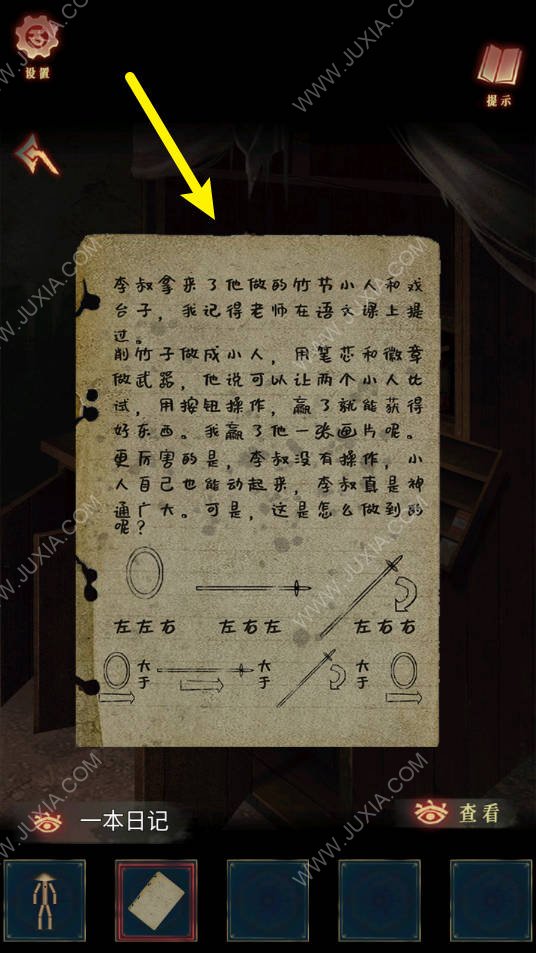 设置
提示
李叔拿来了他做的竹节小人和戏
台子，我记得老师在语文课上提
过。
削竹子做成小人，用笔芯和徽章
做武器，他说可以让两个小人比
试，用按钮操作，赢了就能获得
好东西。我赢了他一张画片呢。
更厉害的是，李叔没有操作，小
人自己也能动起来，李叔真是神
通广大。可是，这是怎么做到的
呢？
左左右 左右左 左右右
大于 大于 大于
一本日记
查看
WWW.JUXIA.COM
WWW.JUXIA.COM
WWW.JUXIA.COM
WWW.JUXIA.COM
WWW.JUXIA.COM
WWW.JUXIA.COM
WWW.JUXIA.COM
WWW.JUXIA.COM